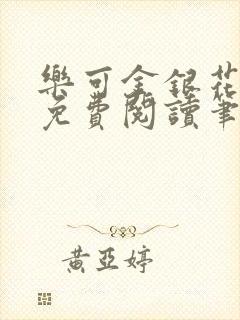 樂可金銀花
免費閱讀筆
黃亞婷